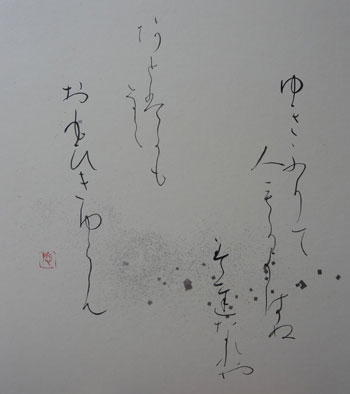 ゆきふりて
人もかよはぬ
みちなれや
あとはかも
なく
おもひきゆらん